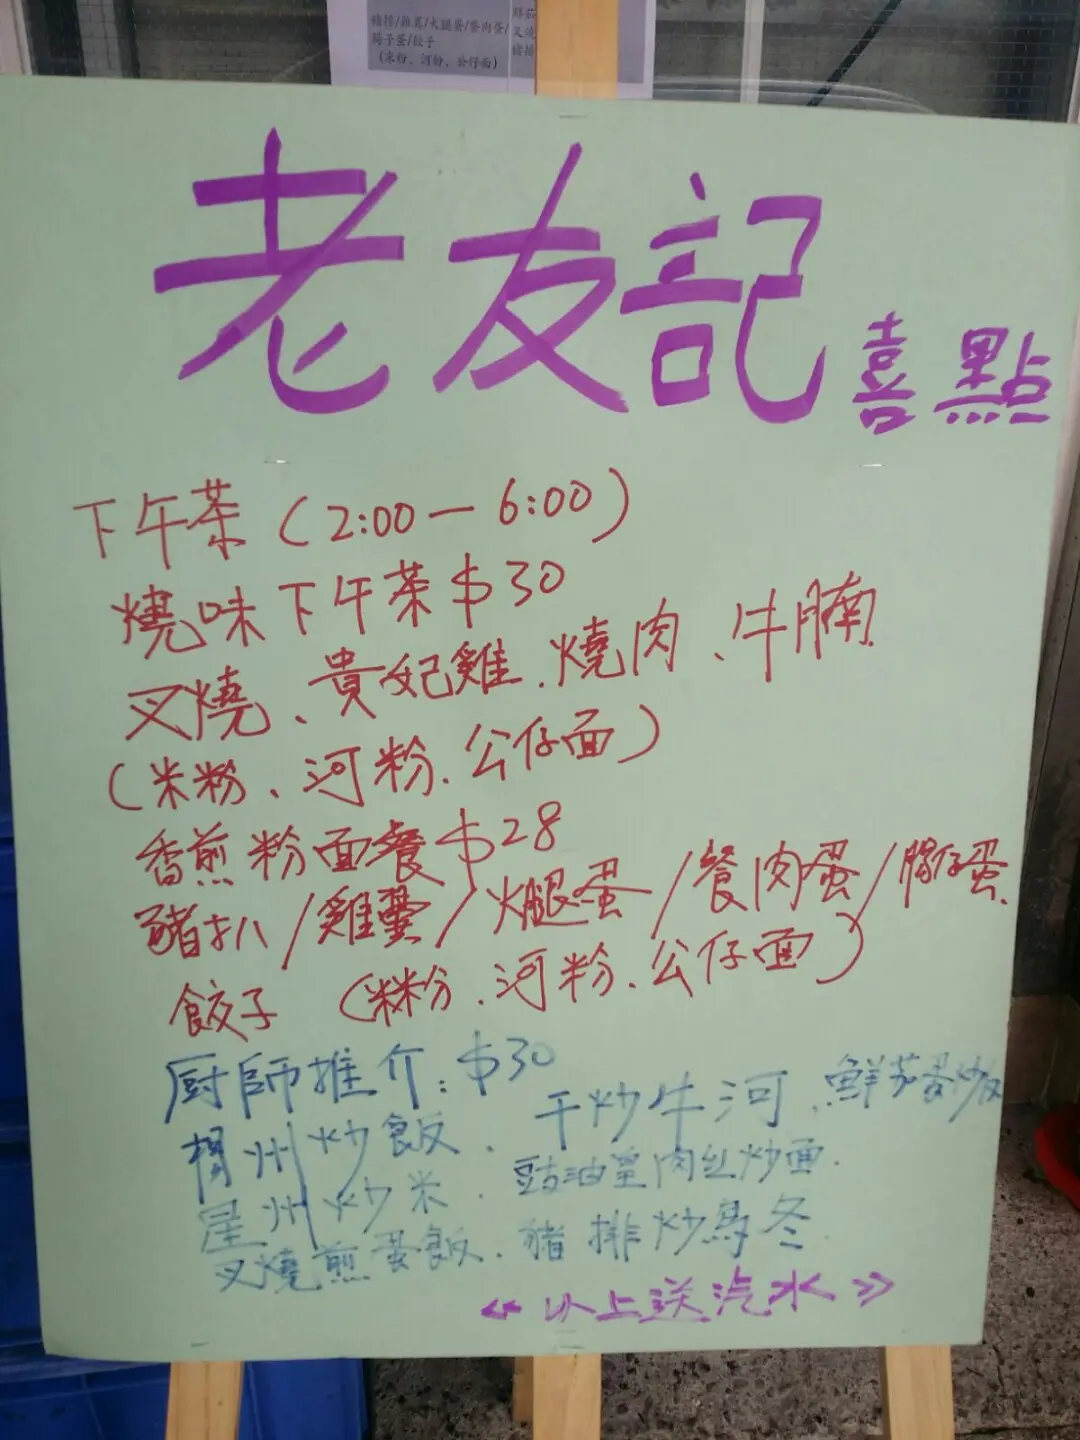 豬排/雞翼/火腿蛋/餐肉蛋/
腸子蛋/餃子
(米粉、河粉、公仔面)
鮮茄
叉燒
豬排
老友記 喜點
下午茶 (2:00—6:00)
燒味下午茶 $30
叉燒、貴妃雞、燒肉、牛腩
(米粉、河粉、公仔面)
香煎粉面餐 $28
豬扒/雞翼/火腿蛋/餐肉蛋/腸仔蛋
餃子 (米粉、河粉、公仔面)
厨師推介: $30
楊州炒飯、干炒牛河、鮮茄蛋炒
星州炒米、豉油皇肉絲炒面、
叉燒煎蛋飯、豬排炒烏冬
《以上送汽水》